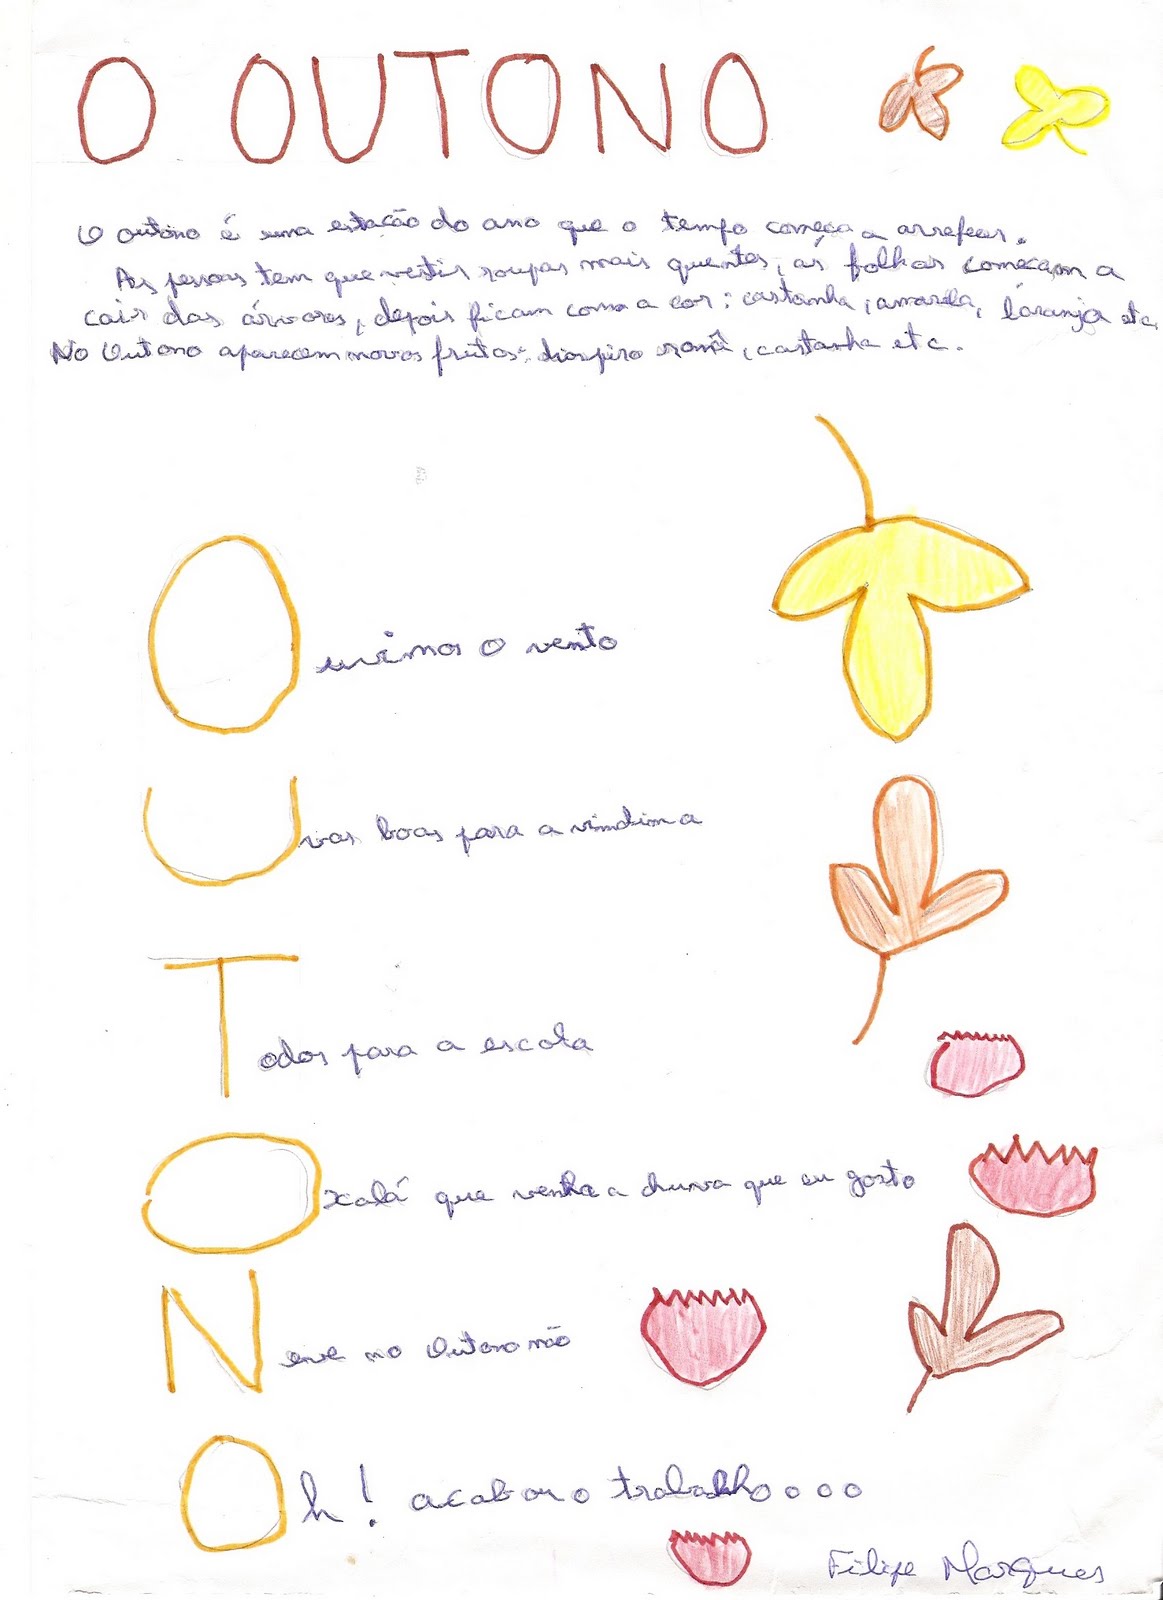 O OUTONO
O outono é uma estação do ano que o tempo começa a arrefecer.
As pessoas tem que vestir roupas mais quentes, as folhas começam a
cair das árvores, depois ficam com a cor: castanha, amarela, laranja etc.
No Outono aparecem novos frutos: diospiro romã, castanha etc.
Ouvimos o vento
Uvas boas para a vindima
Todos para a escola
Oxalá que venha a chuva que eu gosto
Neve no Outono não
Oh! acabou o trabalho o o o
Filipe Marques